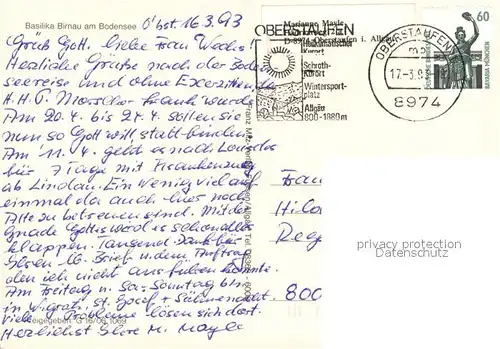 Basilika Birnau am Bodensee
O'bst 16.3.93
Grüß Gott. Liebe Frau
Herzliche Grüße nach der Boden
seereise und ohne Exerzitien da
H.H.P. krank wurde
Am 20.4. bis 24.4. sollen sie
nun so Gott will, stattfinden
Am 11.4. geht es nach Lourdes
für 7 Tage mit Krankenzug
ab Lindau. Ein wenig viel auf
einmal da auch hier noch
Alte zu betreuen sind. Mit der
Gnade Gottes wird es schon alles
klappen. Tausend Dank für
Brief u. dem Auftrag
den ich nicht ausführen konnte.
Am Freitag u. Sa. Sonntag bin
in Wigratz. St. Josef + Sühnenacht.
viele Probleme lösen sich dort.
Herzlichst Ihre M. Mayle
Marianne Mayle
D-8974 Oberstaufen i. Allgäu
OBERSTAUFEN
Heilklimatischer
Kurort
Schroth-
kurort
Wintersport-
platz
Allgäu
800-1880m
OBERSTAUFEN
mb
17.-3.93
8974
60
DEUTSCHE BUNDESPOST
BAVARIA MÜNCHEN
Frau
Reg
800
privacy protection
Datenschutz